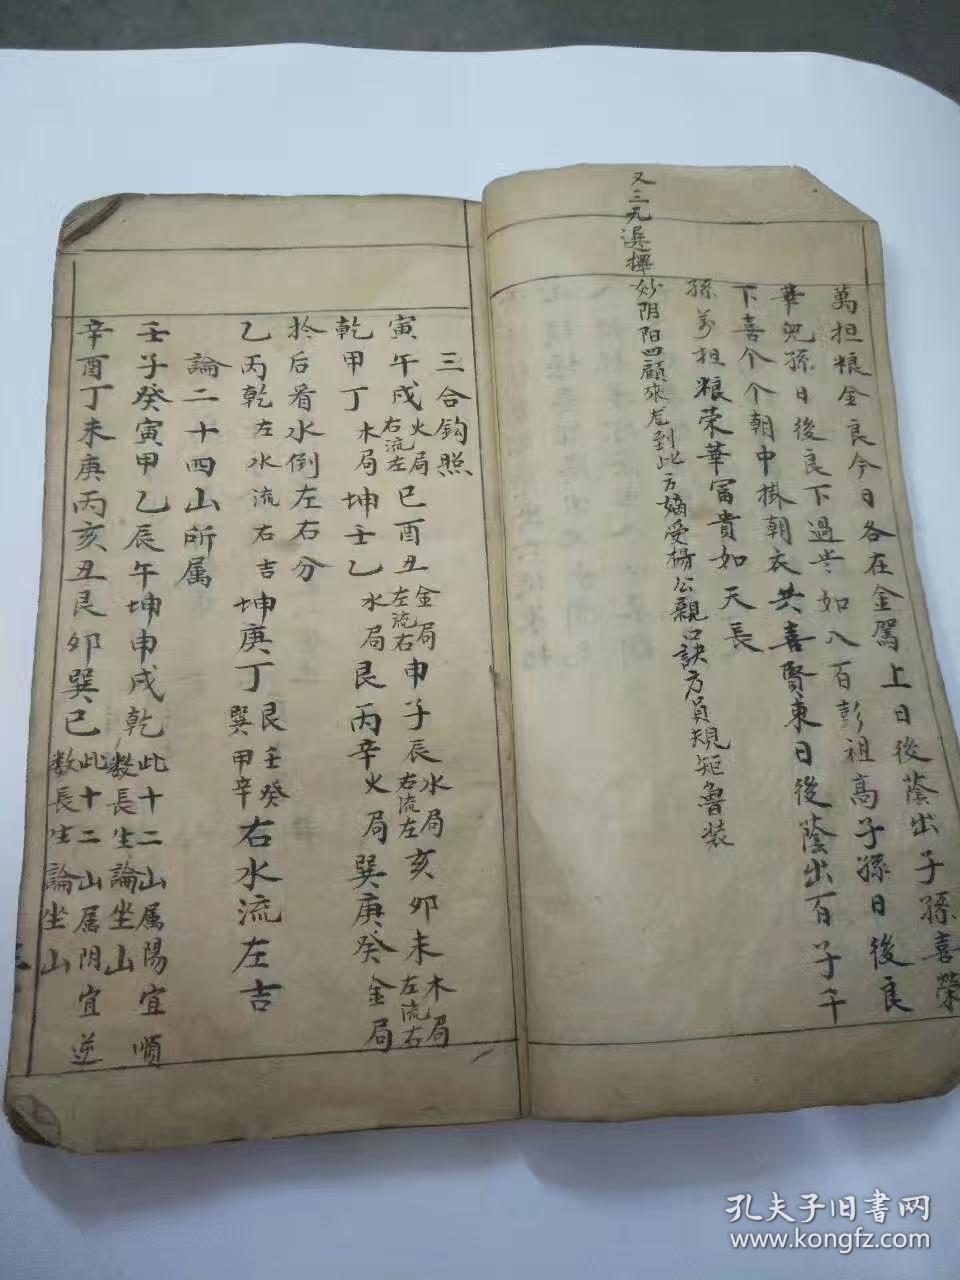 萬担粮金良今日各在金駕上日後蔭出子孫喜榮
華兒孫日後良下過世如八百彭祖高子孫日後良
下喜个个朝中掛朝衣共喜賢東日後蔭出百子千
孫萬担粮荣華富貴如天長
又三元選擇妙阴阳四顧來尨到此方嫡受楊公親口訣方員規矩魯装
三合鈎照
寅午戌火局右流左巳酉丑金局左流右申子辰水局右流左亥卯未木局左流右
乾甲丁木局坤壬乙水局艮丙辛火局巽庚癸金局
扵后看水倒左右分
乙丙乾左水流右吉坤庚丁艮壬癸巽甲辛右水流左吉
論二十四山所属
壬子癸寅甲乙辰午坤申戌乾此十二山属陽宜順数長生論坐山
辛酉丁未庚丙亥丑艮卯巽巳此十二山属阴宜逆数長生論坐山
孔夫子旧書网
www.kongfz.com